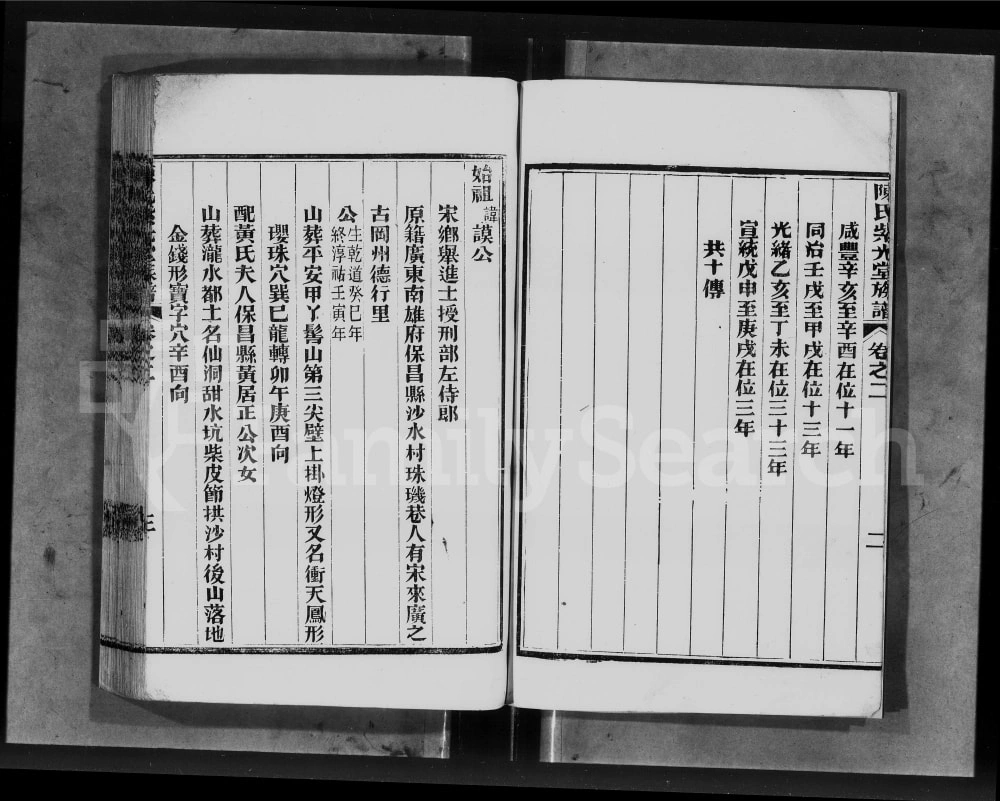 陳氏紫光堂族譜 卷之二 二
咸豐辛亥至辛酉在位十一年
同治壬戌至甲戌在位十三年
光緒乙亥至丁未在位三十三年
宣統戊申至庚戌在位三年
共十傳
始祖諱謨公
宋鄉舉進士授刑部左侍郎
原籍廣東南雄府保昌縣沙水村珠璣巷人有宋來廣之
古岡州德行里
公生乾道癸巳年
終淳祐壬寅年
山葬平安甲丫髻山第三尖壁上掛燈形又名衝天鳳形
瓔珠穴巽巳龍轉卯午庚酉向
配黃氏夫人保昌縣黃居正公次女
山葬瀧水都土名仙洞甜水坑柴皮節拱沙村後山落地
金錢形寶字穴辛酉向
三
FamilySearch